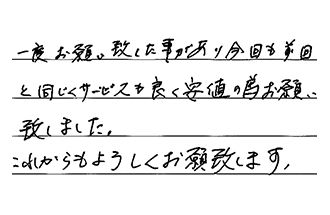 一度お願い致した事があり今回も前回
と同じくサービスも良く安値の為お願い
致しました。
これからもよろしくお願致します。